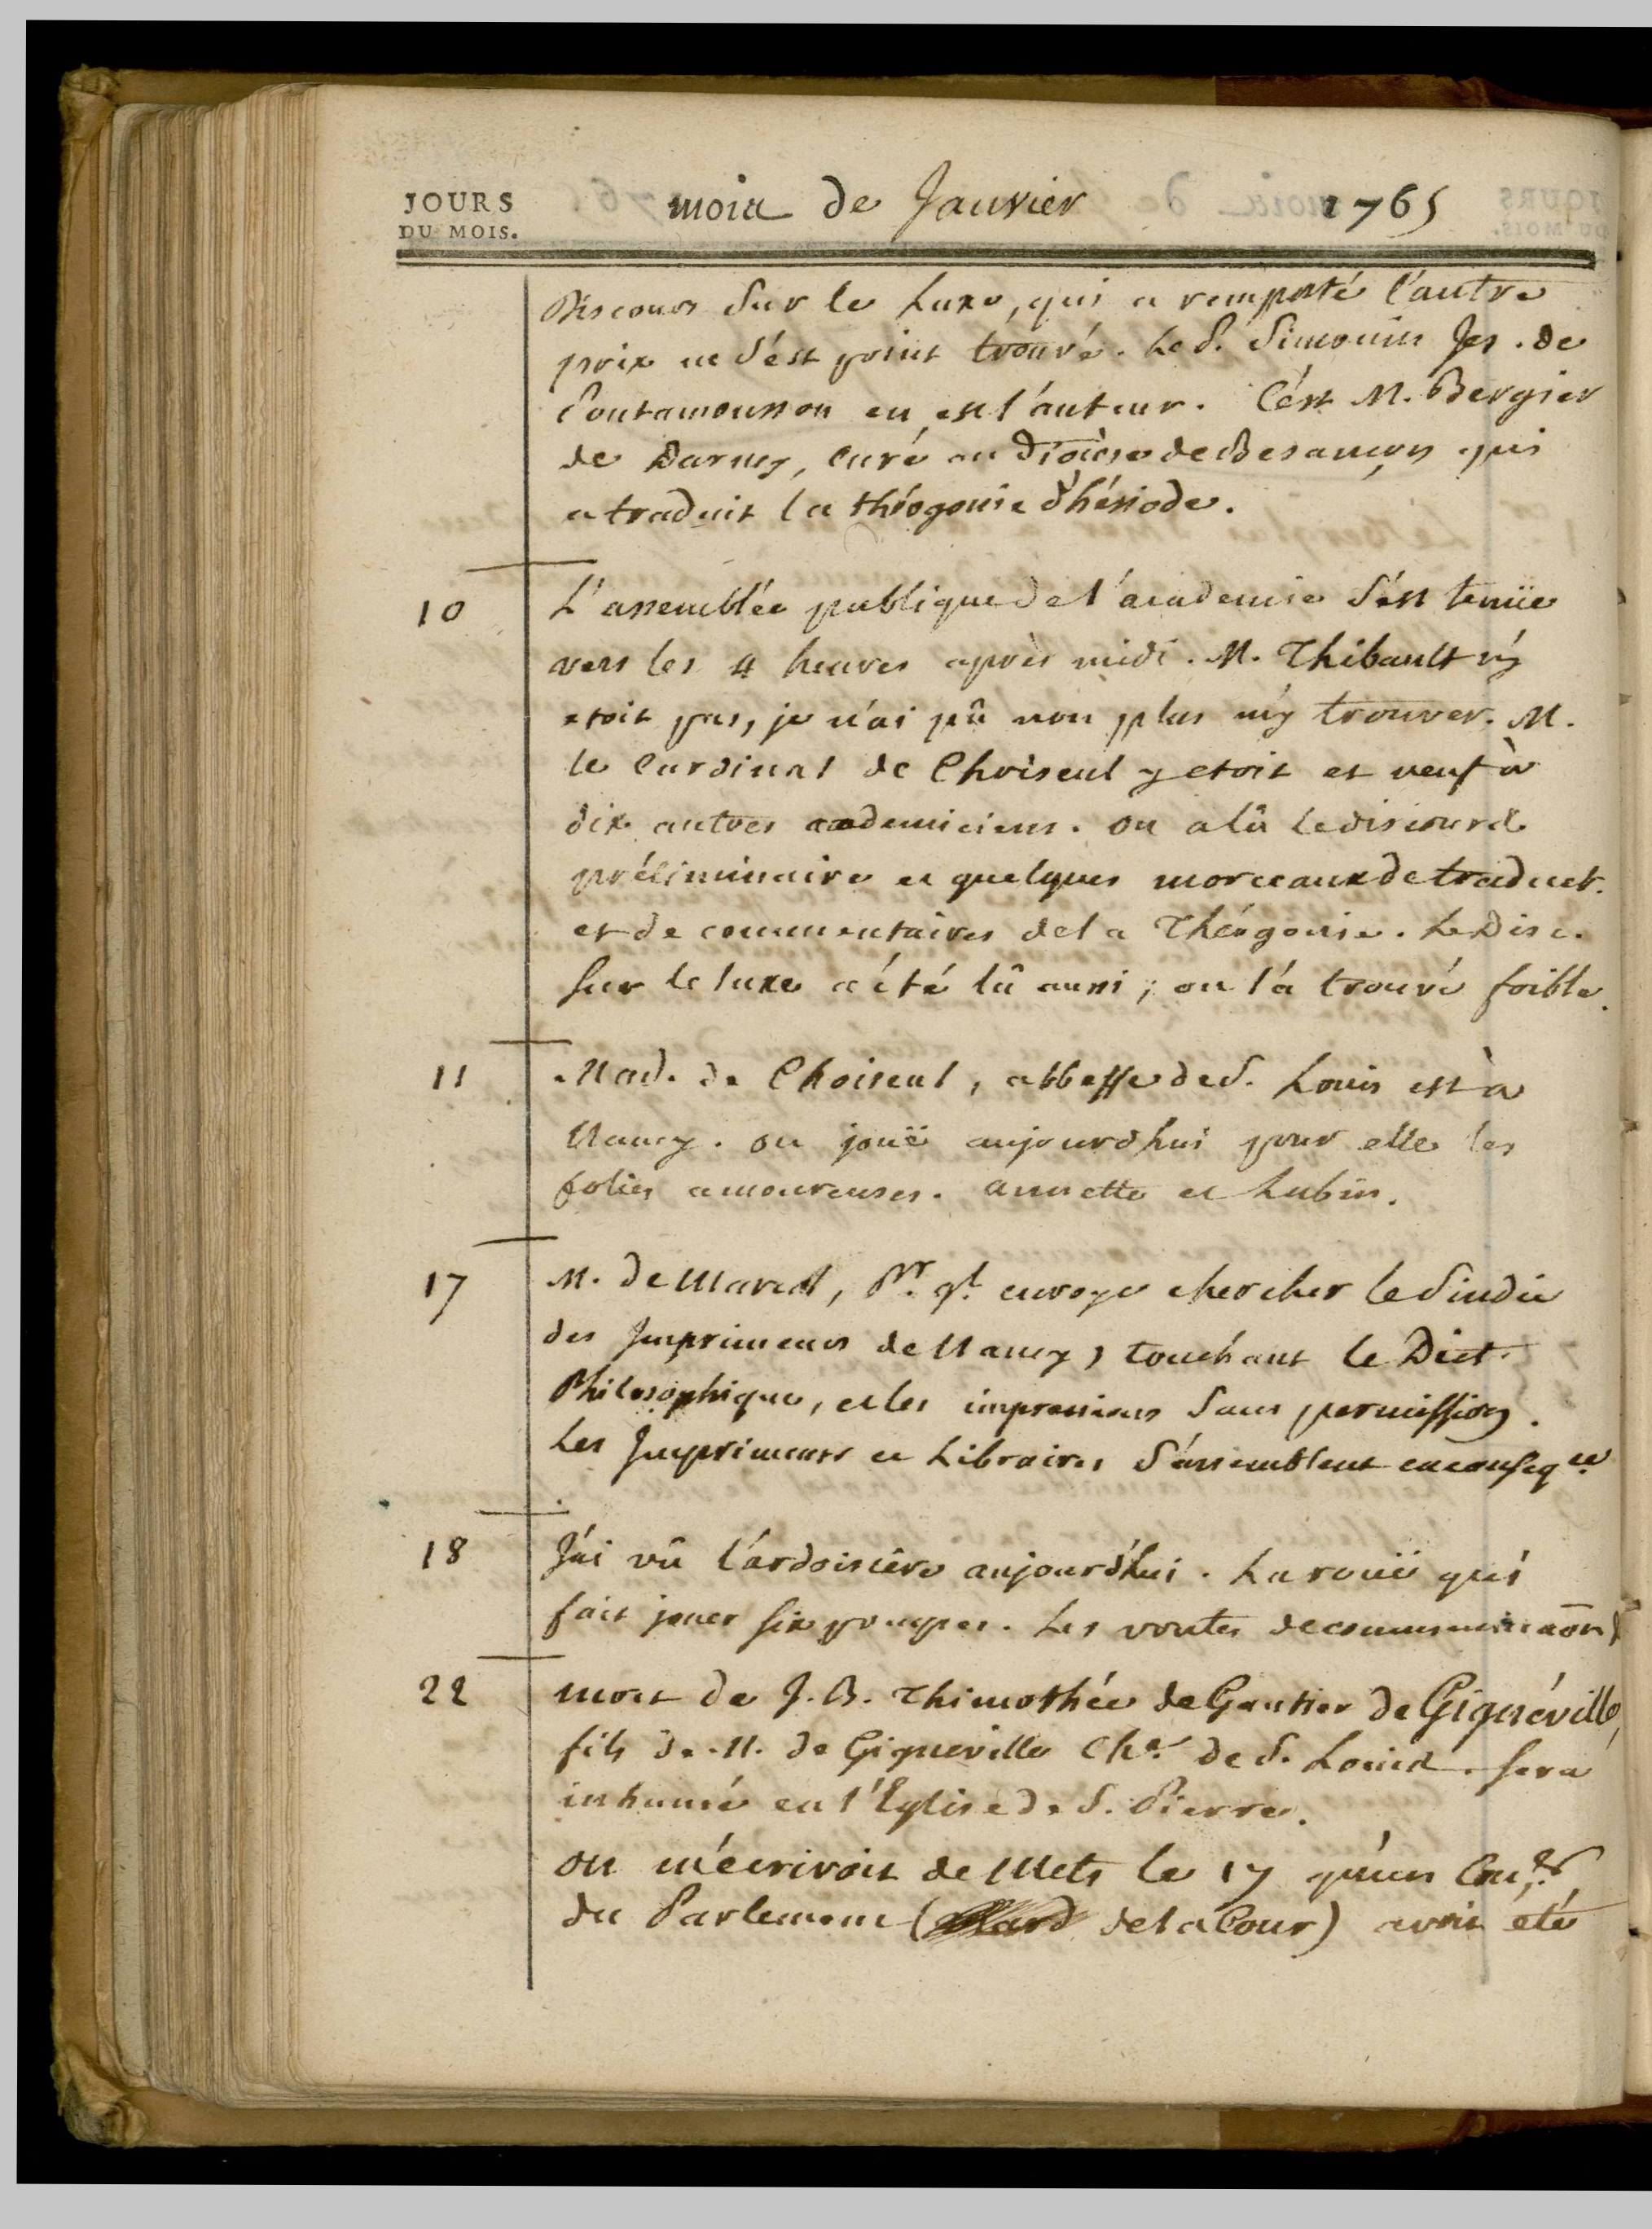 JOURS
DU MOIS.
mois de Janvier 1765
Discours Sur le Luxe, qui a remporté l'autre
prix ne s'est point trouvé. Le P. Simonin Jes. de
Pontamousson en est l'auteur. C'est M. Bergier
de Darney, curé au Diocèse de Besançon qui
a traduit la théogonie d'hésiode.
10 L'assemblée publique de l'academie s'est tenüe
vers les 4 heures après midi. M. Thibault n'y
etoit pas, je n'ai pû non plus m'y trouver. M.
le Cardinal de Choiseul y etoit et neuf à
dix autres academiciens. on a lû le discours
préliminaire et quelques morceaux de traduct.
et de commentaires de la Théogonie. Le Disc.
sur le luxe a été lû aussi; on l'a trouvé foible.
11 Mad. de Choiseul, abbesse de S. Louis est à
Nancy. on joüe aujourdhui pour elle les
folies amoureuses. annette et Lubin.
17 M. de Marcol, Pr. gl. envoye chercher le Sindic
des Imprimeurs de Nancy, touchant le Dict.
Philosophique, et les impressions sans permission.
Les Imprimeurs et Libraires s'assemblent en conseqce.
18 J'ai vû l'ardoisière aujourd'hui. La roüe qui
fait jouer six pompes. Les voutes de communicaõn
22 mort de J. B. Thimothée de Gautier de Gignéville,
fils de M. de Gigneville Cher. de S. Louis. sera
inhumé en l'Eglise de S. Pierre.
on m'écrivoit de Mets le 17 qu'un Coner.
du Parlement ( de la Cour) avoit eté